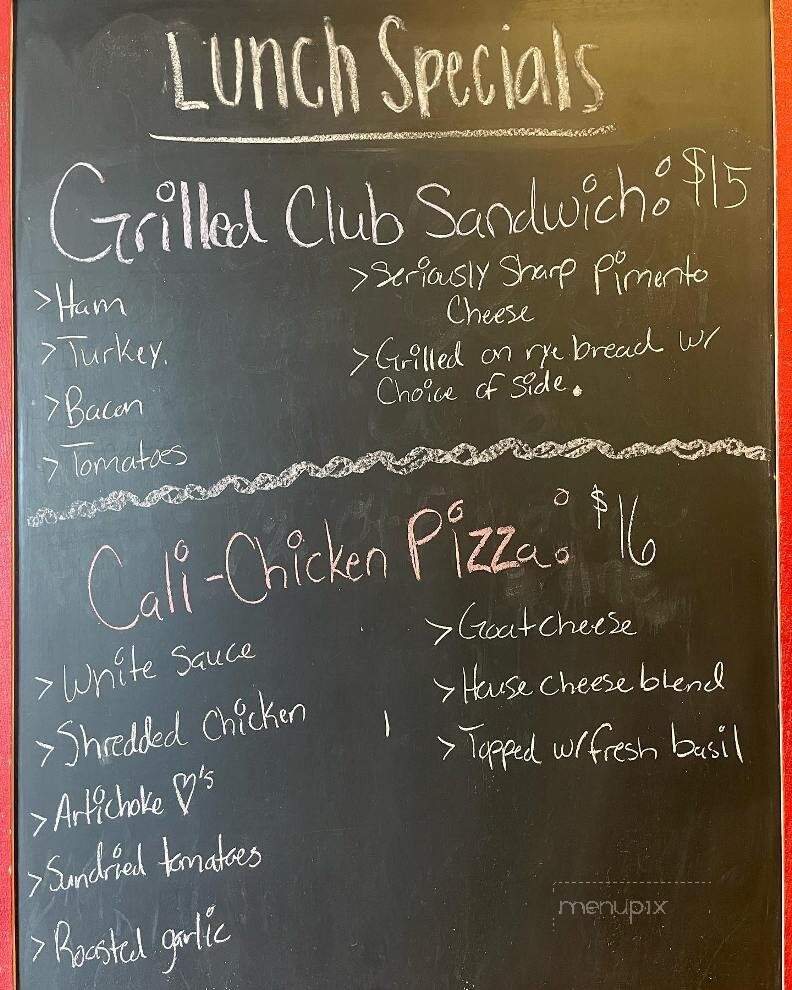 Lunch Specials
Grilled Club Sandwich: $15
>Ham
>Turkey.
>Bacon
>Tomatoes
>Seriously Sharp Pimento
Cheese
>Grilled on rye bread w/
Choice of side.
Cali-Chicken Pizza: $16
>White Sauce
>Shredded Chicken
>Artichoke ♡'s
>Sundried tomatoes
>Roasted garlic
>Goat cheese
>House cheese blend
>Topped w/fresh basil
menupix